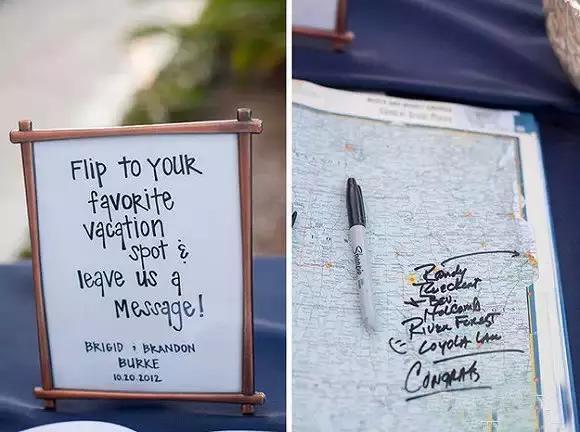 Flip to your
favorite
vacation
spot &
leave us a
Message!
BRIGID & BRANDON
BURKE
10.20.2012
Sharpie
Randy
Bev
Holcomb
River Forest
Loyola
Congrats